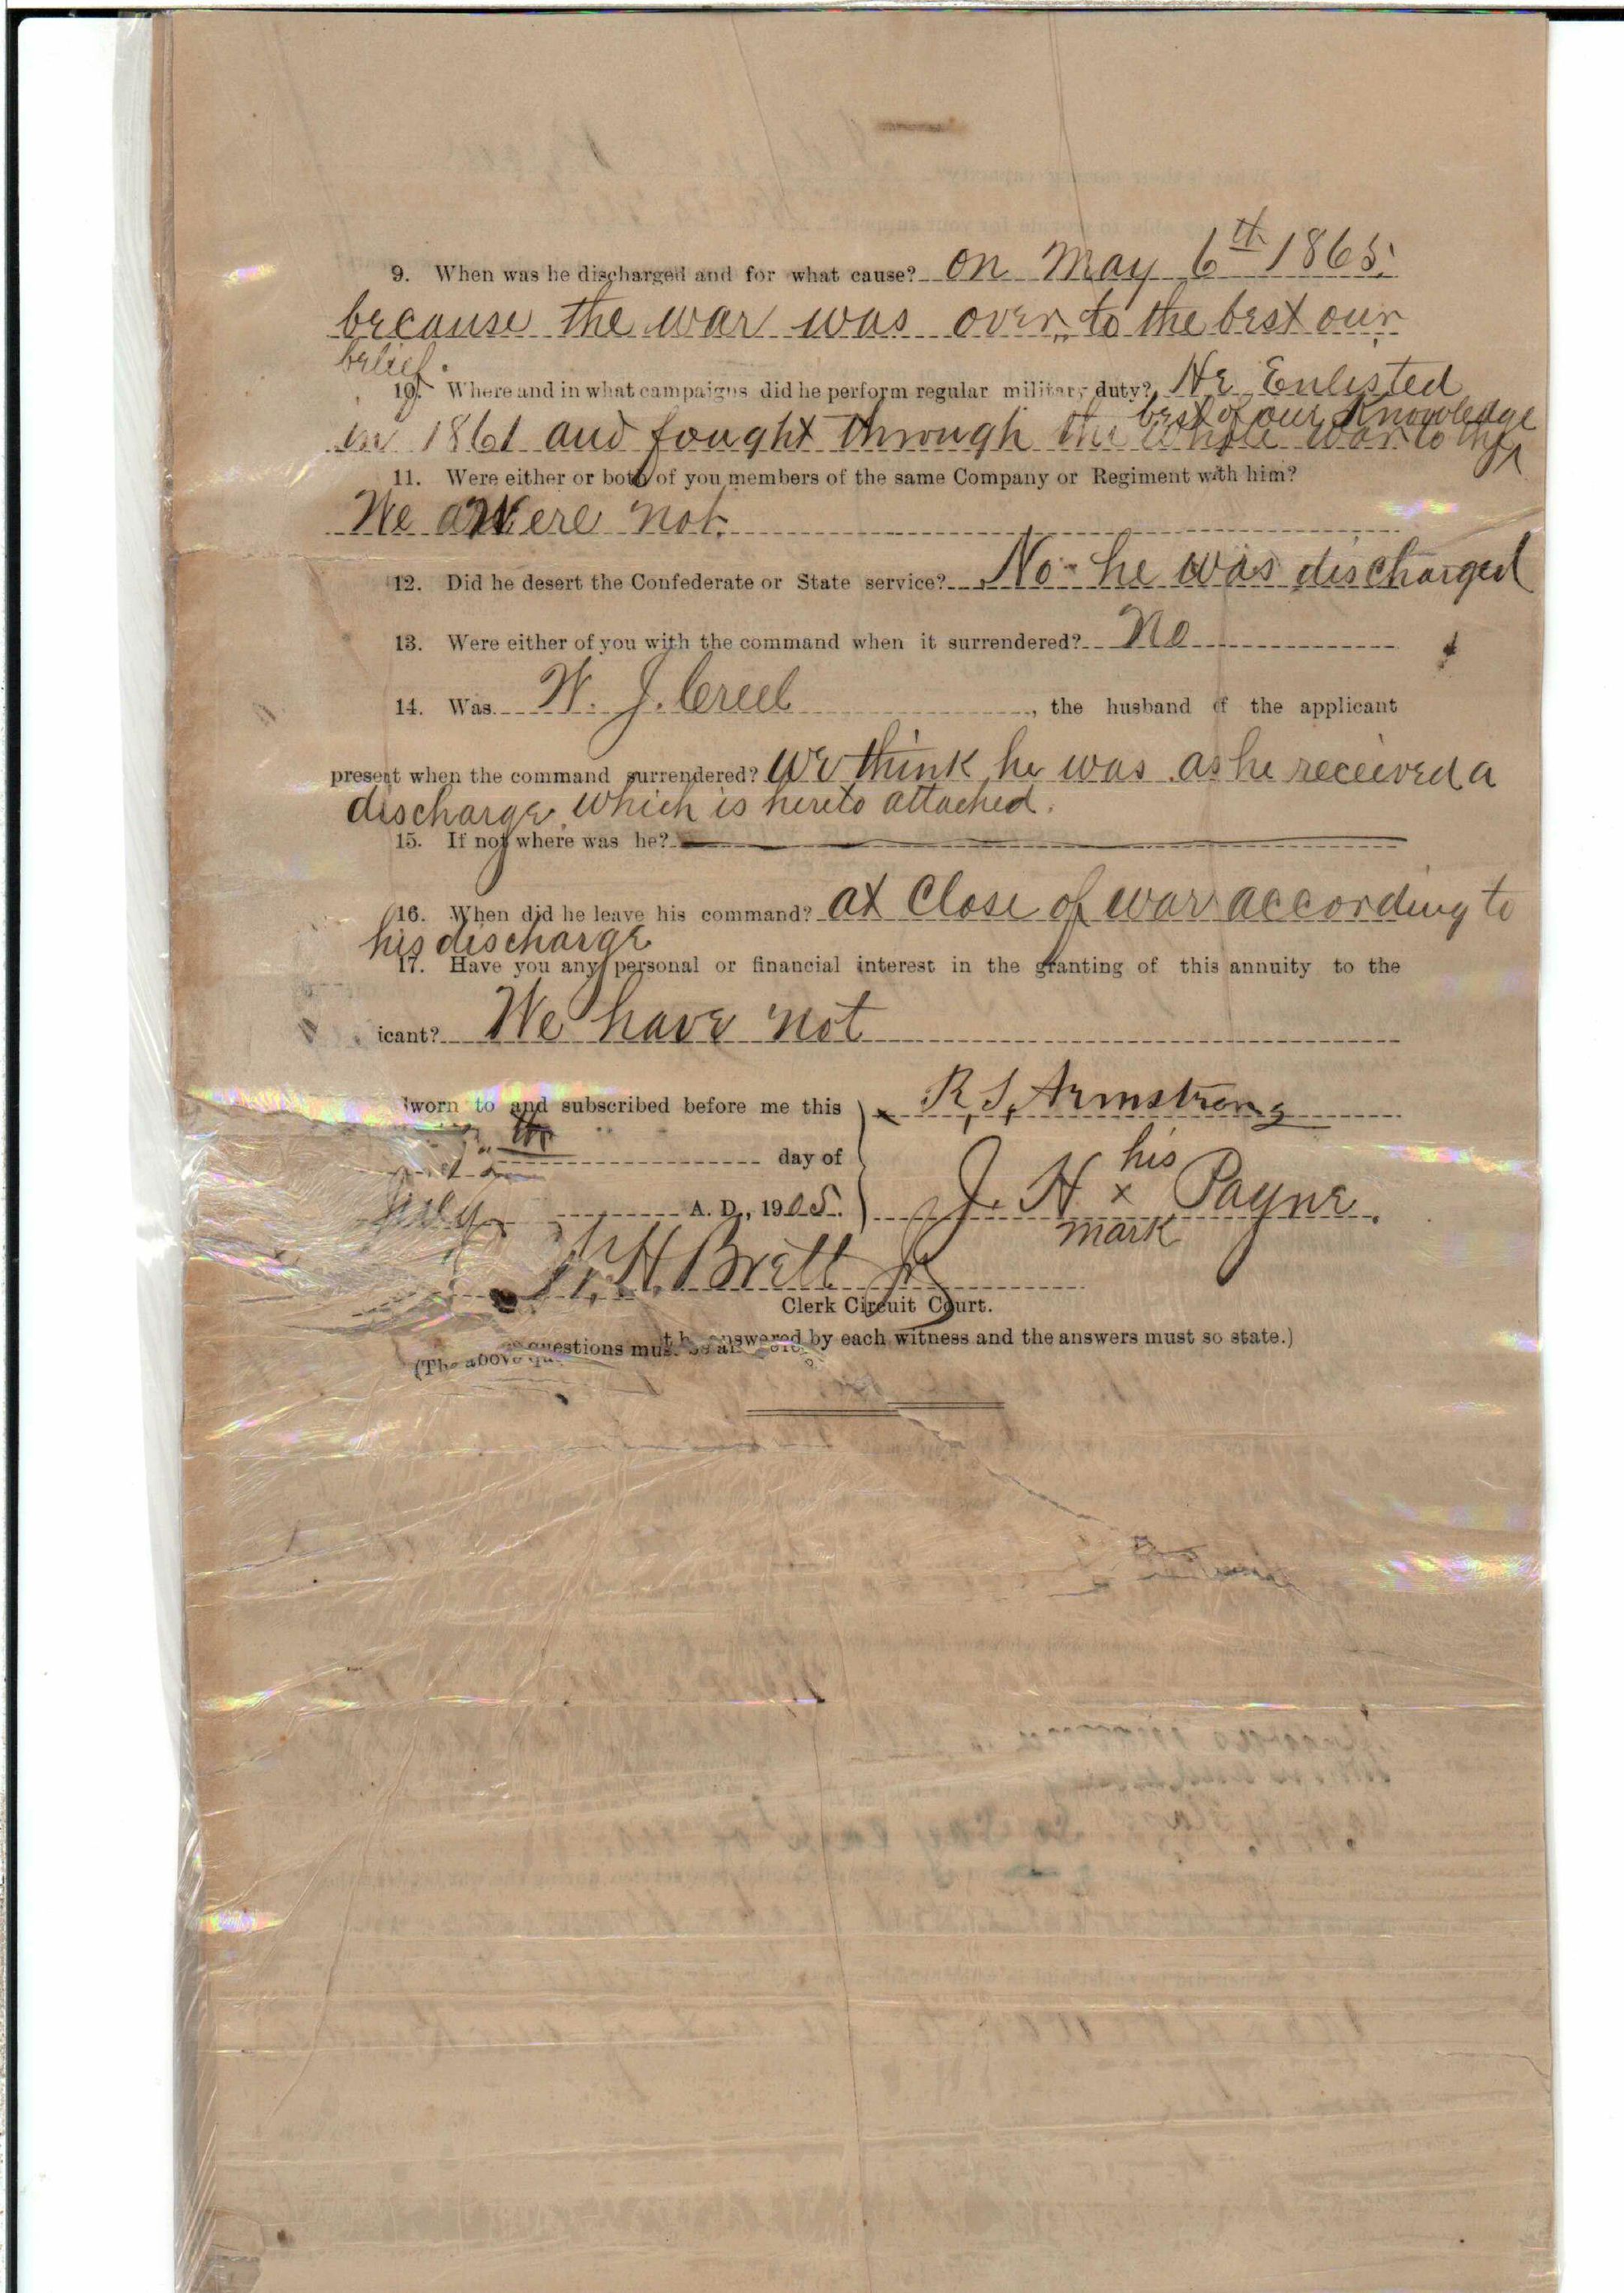 9. When was he discharged and for what cause? on May 6th 1865.
because the war was over, to the best our
belief.
10. Where and in what campaigns did he perform regular military duty? He Enlisted
best of our Knowledge
in 1861 and fought through the whole war to the
11. Were either or both of you members of the same Company or Regiment with him?
We were not.
12. Did he desert the Confederate or State service? No - he was discharged
13. Were either of you with the command when it surrendered? No
14. Was W. J. Creel, the husband of the applicant
present when the command surrendered? We think he was as he received a
discharge which is hereto attached.
15. If not where was he?
16. When did he leave his command? at Close of war according to
his discharge
17. Have you any personal or financial interest in the granting of this annuity to the
icant? We have not
worn to and subscribed before me this
R. S. Armstrong
day of
his
J. H x Payne.
mark
July A. D., 1905.
H. Brett Jr
Clerk Circuit Court.
(The above questions must be answered by each witness and the answers must so state.)